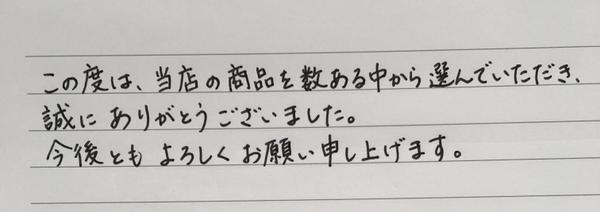 この度は、当店の商品を数ある中から選んでいただき、
誠にありがとうございました。
今後ともよろしくお願い申し上げます。